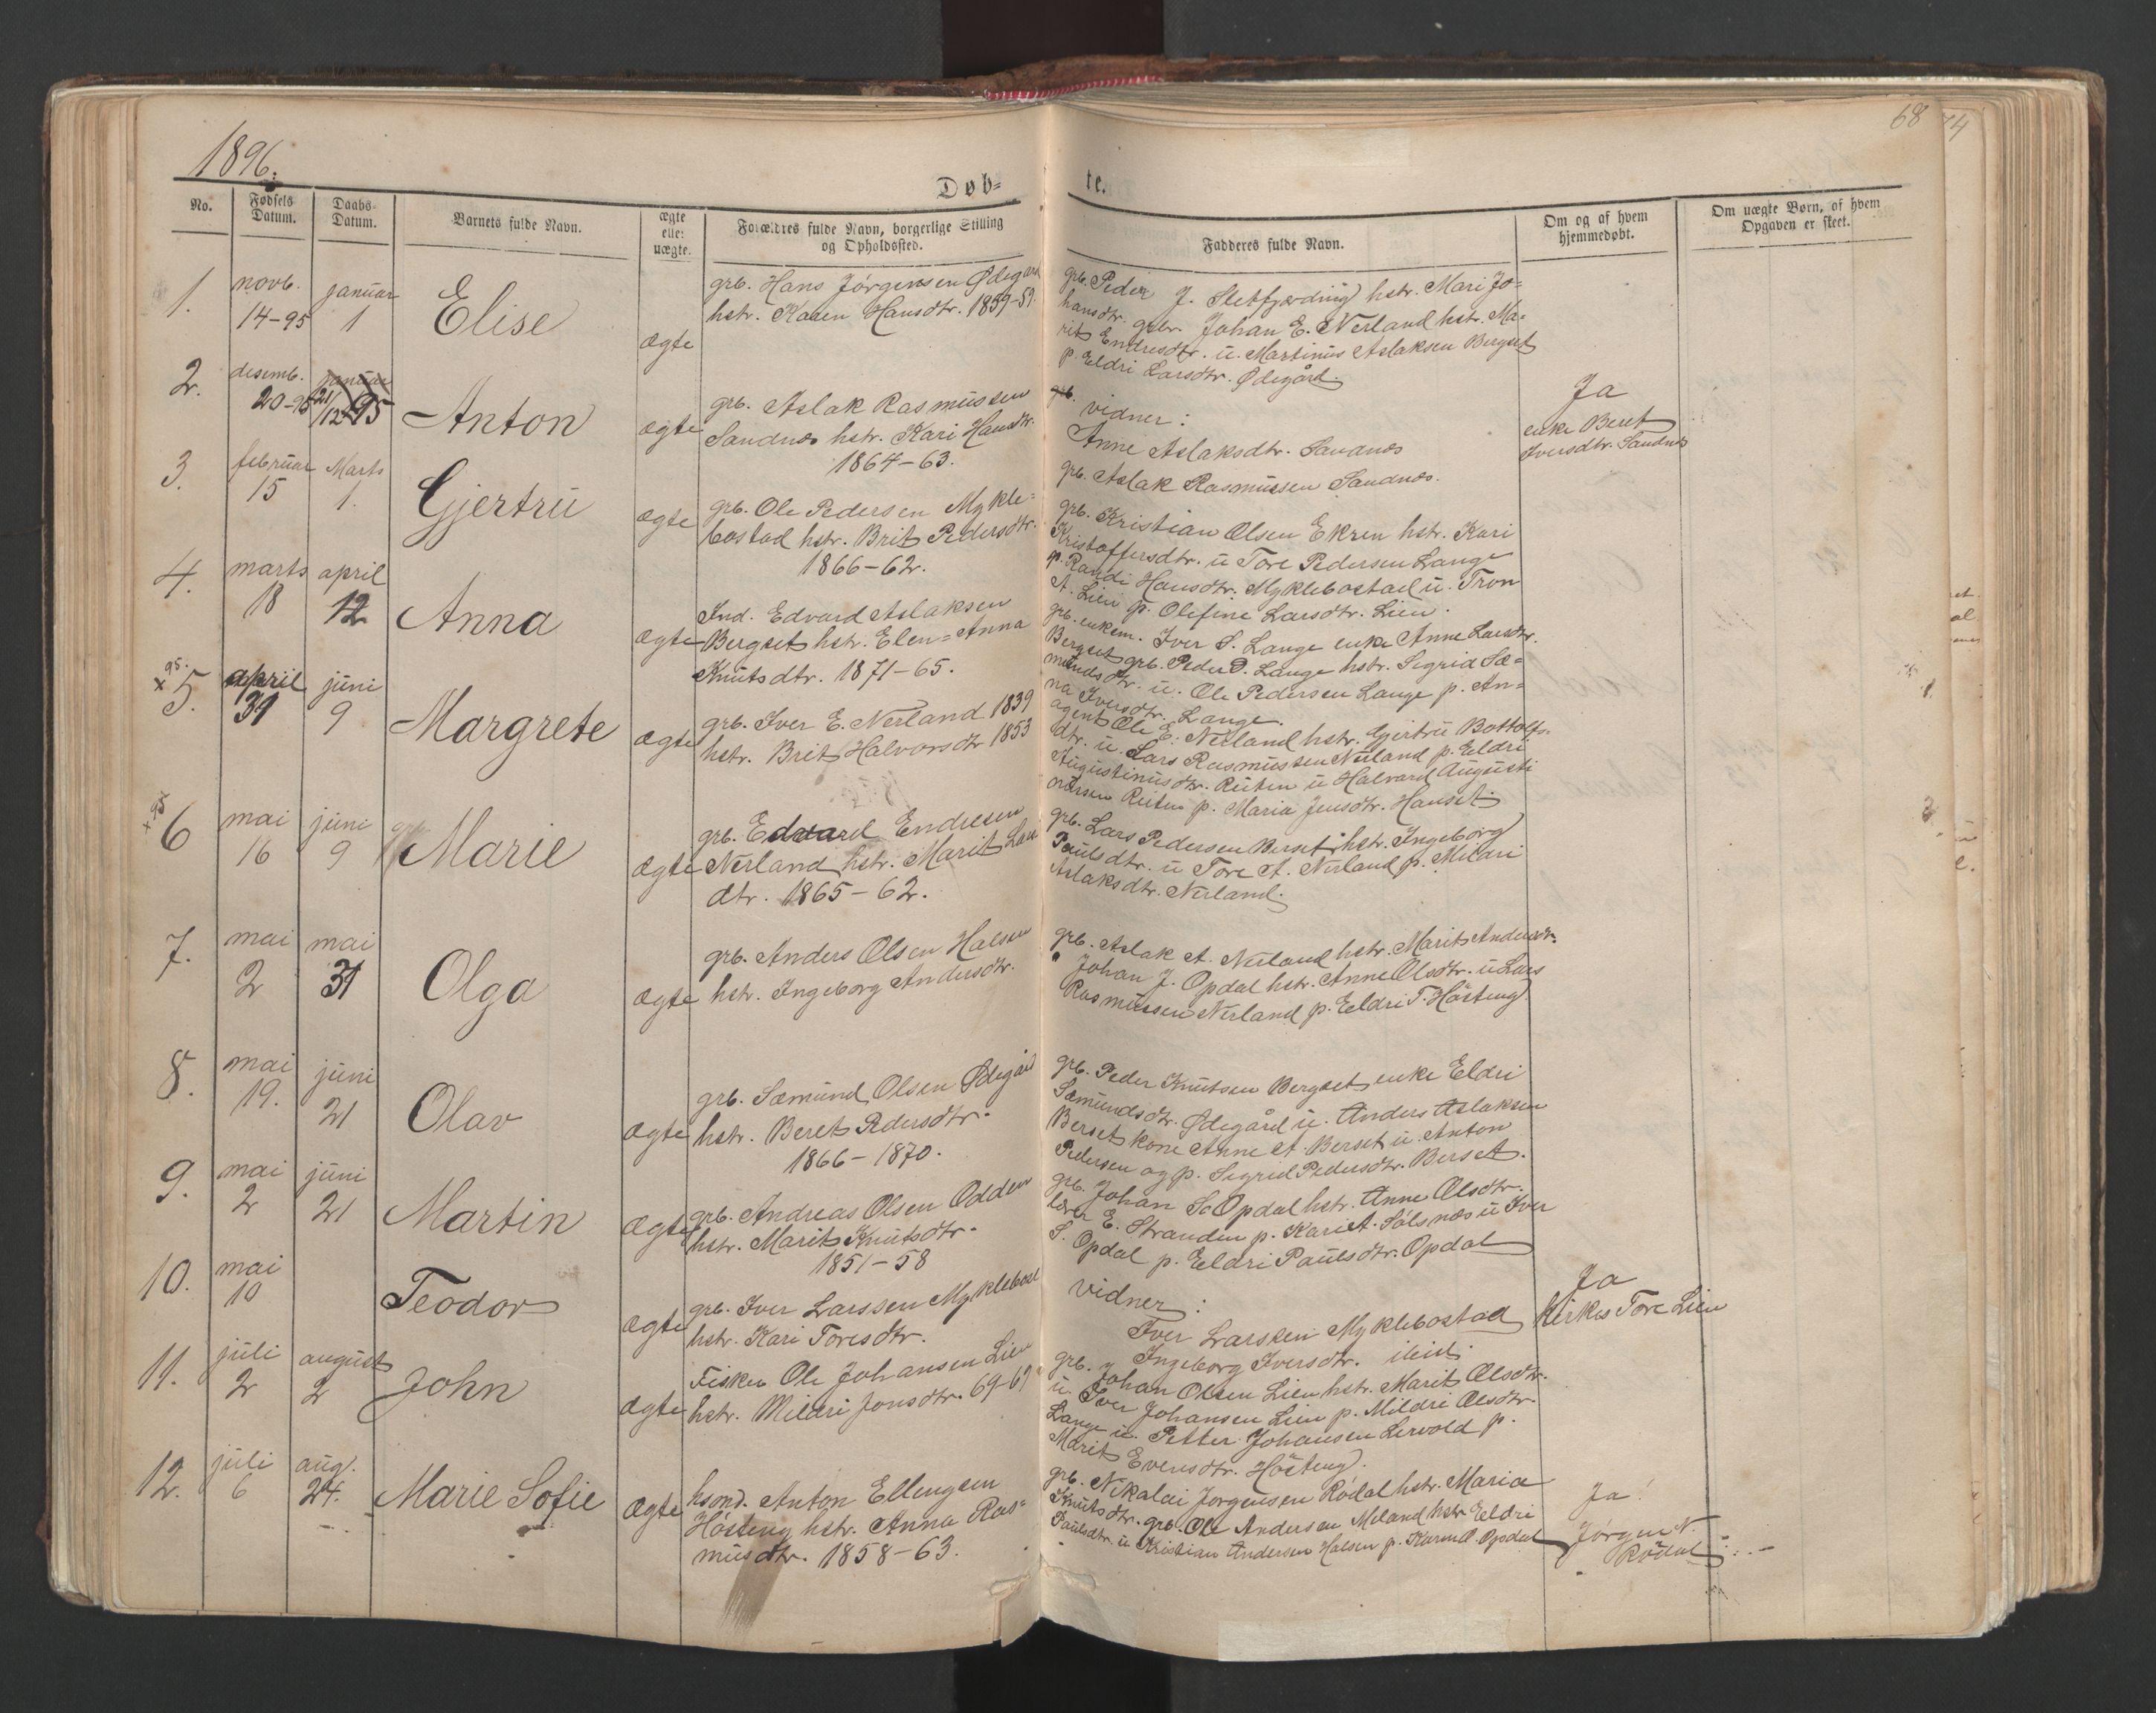 1896.
68
74
Døb=
te.
No.
Fødsels Datum.
Daabs- Datum.
Barnets fulde Navn.
ægte eller uægte.
Forældres fulde Navn, borgerlige Stilling og Opholdssted.
Fadderes fulde Navn.
Om og af hvem hjemmedøbt.
Om uægte Børn, af hvem Opgaven er skeet.
1.
novb.
14-95
januar
1
Elise
ægte
grb. Hans Jörgensen Ødegård
hstr. Karen Hansdtr. 1859-59.
grb. Peder J. Sletfjerding hstr. Mari Jo=
hansdtr. grbr. Johan E. Nerland hstr. Ma=
rit Endresdtr. u. Martinus Aslaksen Bergset
p. Eldri Larsdtr. Ødegård.
2.
desemb.
20-95
januar
21/12 95
Anton
ægte
grb. Aslak Rasmussen
Sandnæs hstr. Kari Hansdtr.
1864-63.
grb.
vidner:
Anne Aslaksdtr. Sandnæs
grb. Aslak Rasmussen Sandnæs.
Ja
enke Beret
Iversdtr. Sandnæs
3.
februar
15
Marts
1.
Gjertru
ægte
grb. Ole Pedersen Mykle=
bostad hstr. Brit Pedersdtr.
1866-62.
grb. Kristian Olsen Ekren hstr. Kari
Kristoffersdtr. u Tore Pedersen Lange
p. Randi Hansdtr. Myklebostad u. Tron
A. Lien p. Olefine Larsdtr. Lien.
4.
marts
18
april
12
Anna
ægte
Ind. Edvard Aslaksen
Bergset hstr. Elen=Anna
Knutsdtr. 1871-65.
grb. enkem. Iver S. Lange enke Anne Larsdtr.
Bergset grb. Peder O. Lange hstr. Sigrid Sæ=
mundsdtr. u. Ole Pedersen Lange p. An=
na Iversdtr. Lange.
95.
x
5.
april
31
juni
9
Margrete
ægte
grb. Iver E. Nerland 1839
hstr. Brit Halvorsdtr 1853
agent Ole E. Nerland hstr. Gjertru Bottolfs-
dtr. u. Lars Rasmussen Nerland p. Eldri
Augustinusdtr. Reiten u Halvard Augusti
nussen Reiten p. Maria Jensdtr. Hanset.
x 95.
6
mai
16
juni
9
Marie
ægte
grb. Edvard Endresen
Nerland hstr. Marit Lars
dtr. 1865-62.
grb. Lars Pedersen Berset hstr. Ingeborg
Paulsdtr. u Tore A. Nerland p. Mildri
Aslaksdtr. Nerland.
7.
mai
2
mai
31
Olga
ægte
grb. Anders Olsen Halsen
hstr. Ingeborg Andersdtr.
grb. Aslak A. Nerland hstr. Marit Andersdtr.
Johan J. Opdal hstr. Anne Olsdtr. u Lars
Rasmussen Nerland p. Eeldri T. Hösteng.
8.
mai
19.
juni
21
Olav
ægte
grb. Sæmund Olsen Ødegård
hstr. Beret Pedersdtr.
1866-1870.
grb. Peder Knutsen Bergset enke Eldri
Sæmundsdtr. Ødegård u. Anders Aslaksen
Berset kone Anne A. Berset u. Anton
Pedersen og p. Sigrid Pedersdtr. Berset.
9.
mai
2
juni
21
Martin
ægte
grb. Andreas Olsen Odden
hstr. Marit Knutsdtr.
1851-58
grb. Johan S. Opdal hstr. Anne Olsdtr.
lærer E. Stranden p. Kari A. Sölsnæs u Iver
S. Opdal p. Eeldri Paulsdtr. Opdal
10.
mai
10
Teodor
ægte
grb. Iver Larssen Myklebost
hstr. Kari Toresdtr.
vidner:
Iver Larssen Myklebostad
Ingeborg Iversdtr. ibid.
Ja
kirkes Tore Lien
11.
juli
2
august
2
John
ægte
Fisker Ole Johansen Lien
hstr. Mildri Jonsdtr. 69-69
grb. Johan Olsen Lien hstr. Marit Olsdtr.
u. Iver Johansen Lien p. Mildri Olsdtr.
Lange u. Petter Johansen Lervold p.
Marit Evensdtr. Hösteng.
12.
juli
6
aug.
24.
Marie Sofie
ægte
hsmd. Anton Ellingsen
Hösteng hstr. Anna Ras=
musdtr. 1858-63.
grb. Nikolai Jörgensen Rödal hstr. Maria
Knutsdtr. grb. Ole Andersen Meland hstr. Eeldri
Paulsdtr. u Kristian Andersen Halsen p. Karen O. Opdal
Ja!
Jörgen N.
Rödal